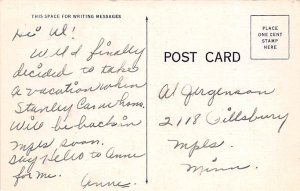 THIS SPACE FOR WRITING MESSAGES
Hi Al!
Well finally
decided to take
a vacation when
Stanley came home.
Will be back in
Mpls soon.
Say Hello to Anne
for me.
Anne.
POST CARD
PLACE
ONE CENT
STAMP
HERE
Al Jergenson
2118 Pillsbury
Mpls.
Minn.